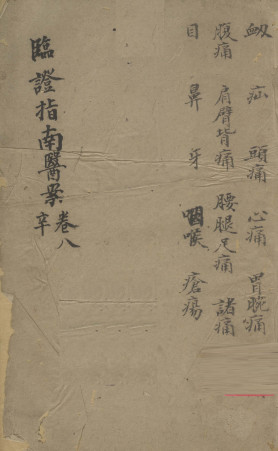 衂 疝 頭痛 心痛 胃脘痛
腹痛 肩臂背痛 腰腿足痛 諸痛
目 鼻 牙 咽喉 瘡瘍
臨證指南醫案 卷八
辛